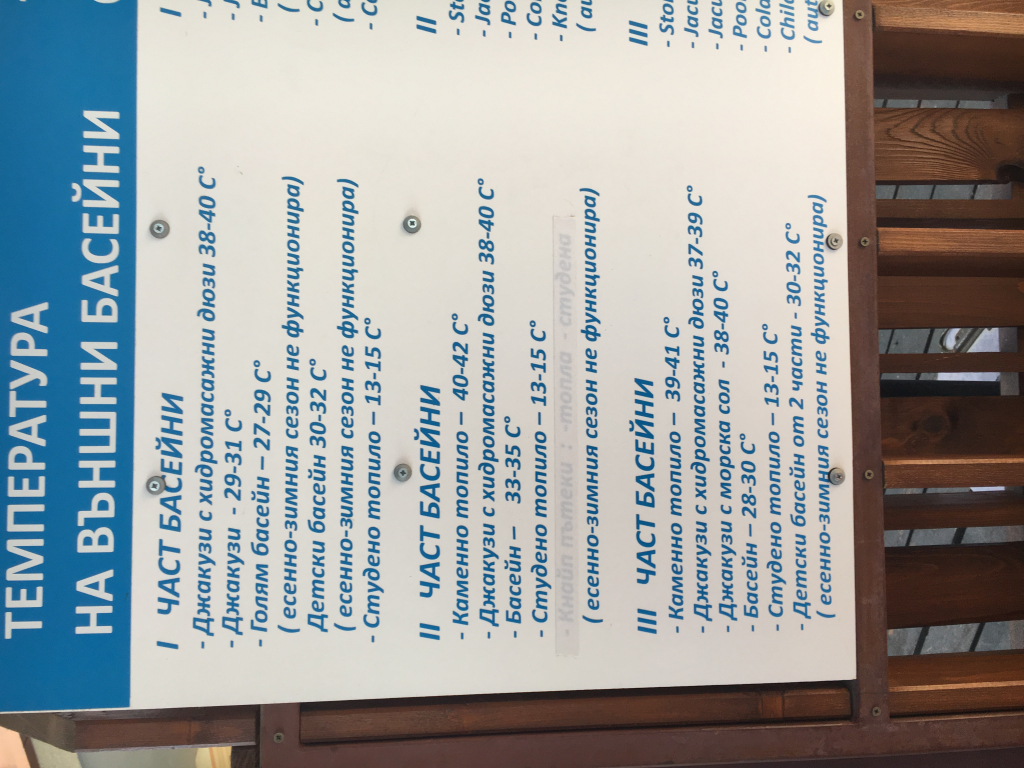 ТЕМПЕРАТУРА
НА ВЪНШНИ БАСЕЙНИ
I ЧАСТ БАСЕЙНИ
- Джакузи с хидромасажни дюзи 38-40 C°
- Джакузи - 29-31 C°
- Голям басейн – 27-29 C°
( есенно-зимния сезон не функционира)
Детски басейн 30-32 C°
( есенно-зимния сезон не функционира)
- Студено топило – 13-15 C°
II ЧАСТ БАСЕЙНИ
- Каменно топило – 40-42 C°
- Джакузи с хидромасажни дюзи 38-40 C°
- Басейн – 33-35 C°
- Студено топило – 13-15 C°
- Кнайп пътеки : -топла - студена
( есенно-зимния сезон не функционира)
III ЧАСТ БАСЕЙНИ
- Каменно топило – 39-41 C°
- Джакузи с хидромасажни дюзи 37-39 C°
- Джакузи с морска сол - 38-40 C°
- Басейн – 28-30 C°
- Студено топило – 13-15 C°
- Детски басейн от 2 части - 30-32 C°
( есенно-зимния сезон не функционира)
I
II
III